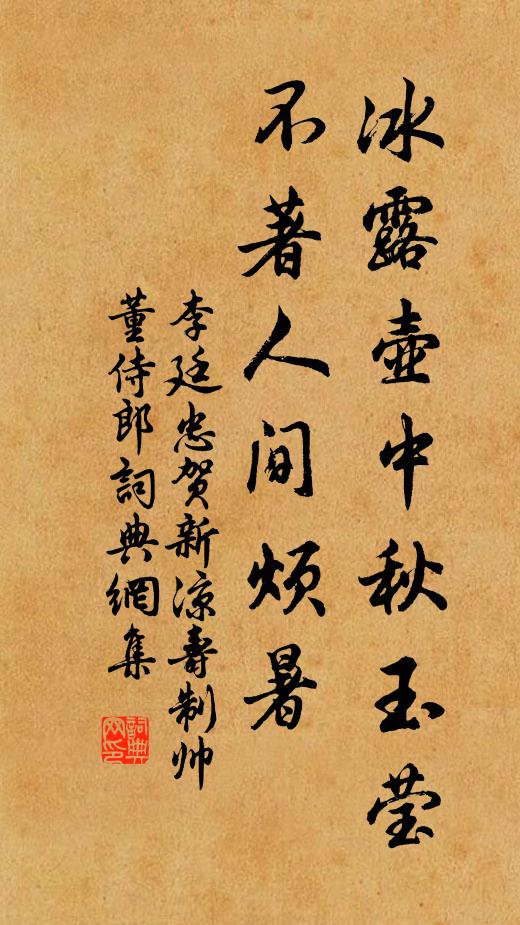 冰露壺中秋玉莹
不著人间烦暑
李廷忠贺新凉寿制帅
董侍郎詞典網集
詞典网印